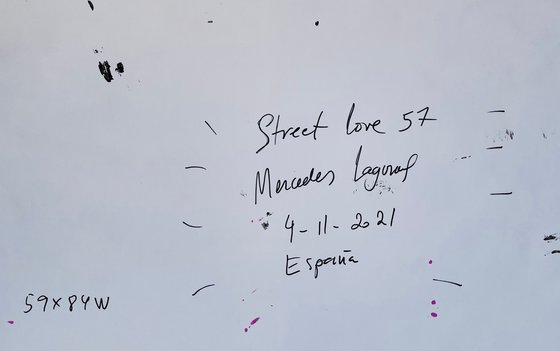 Street love 57
Mercedes Lagunas
4-11-2021
España
59x84W